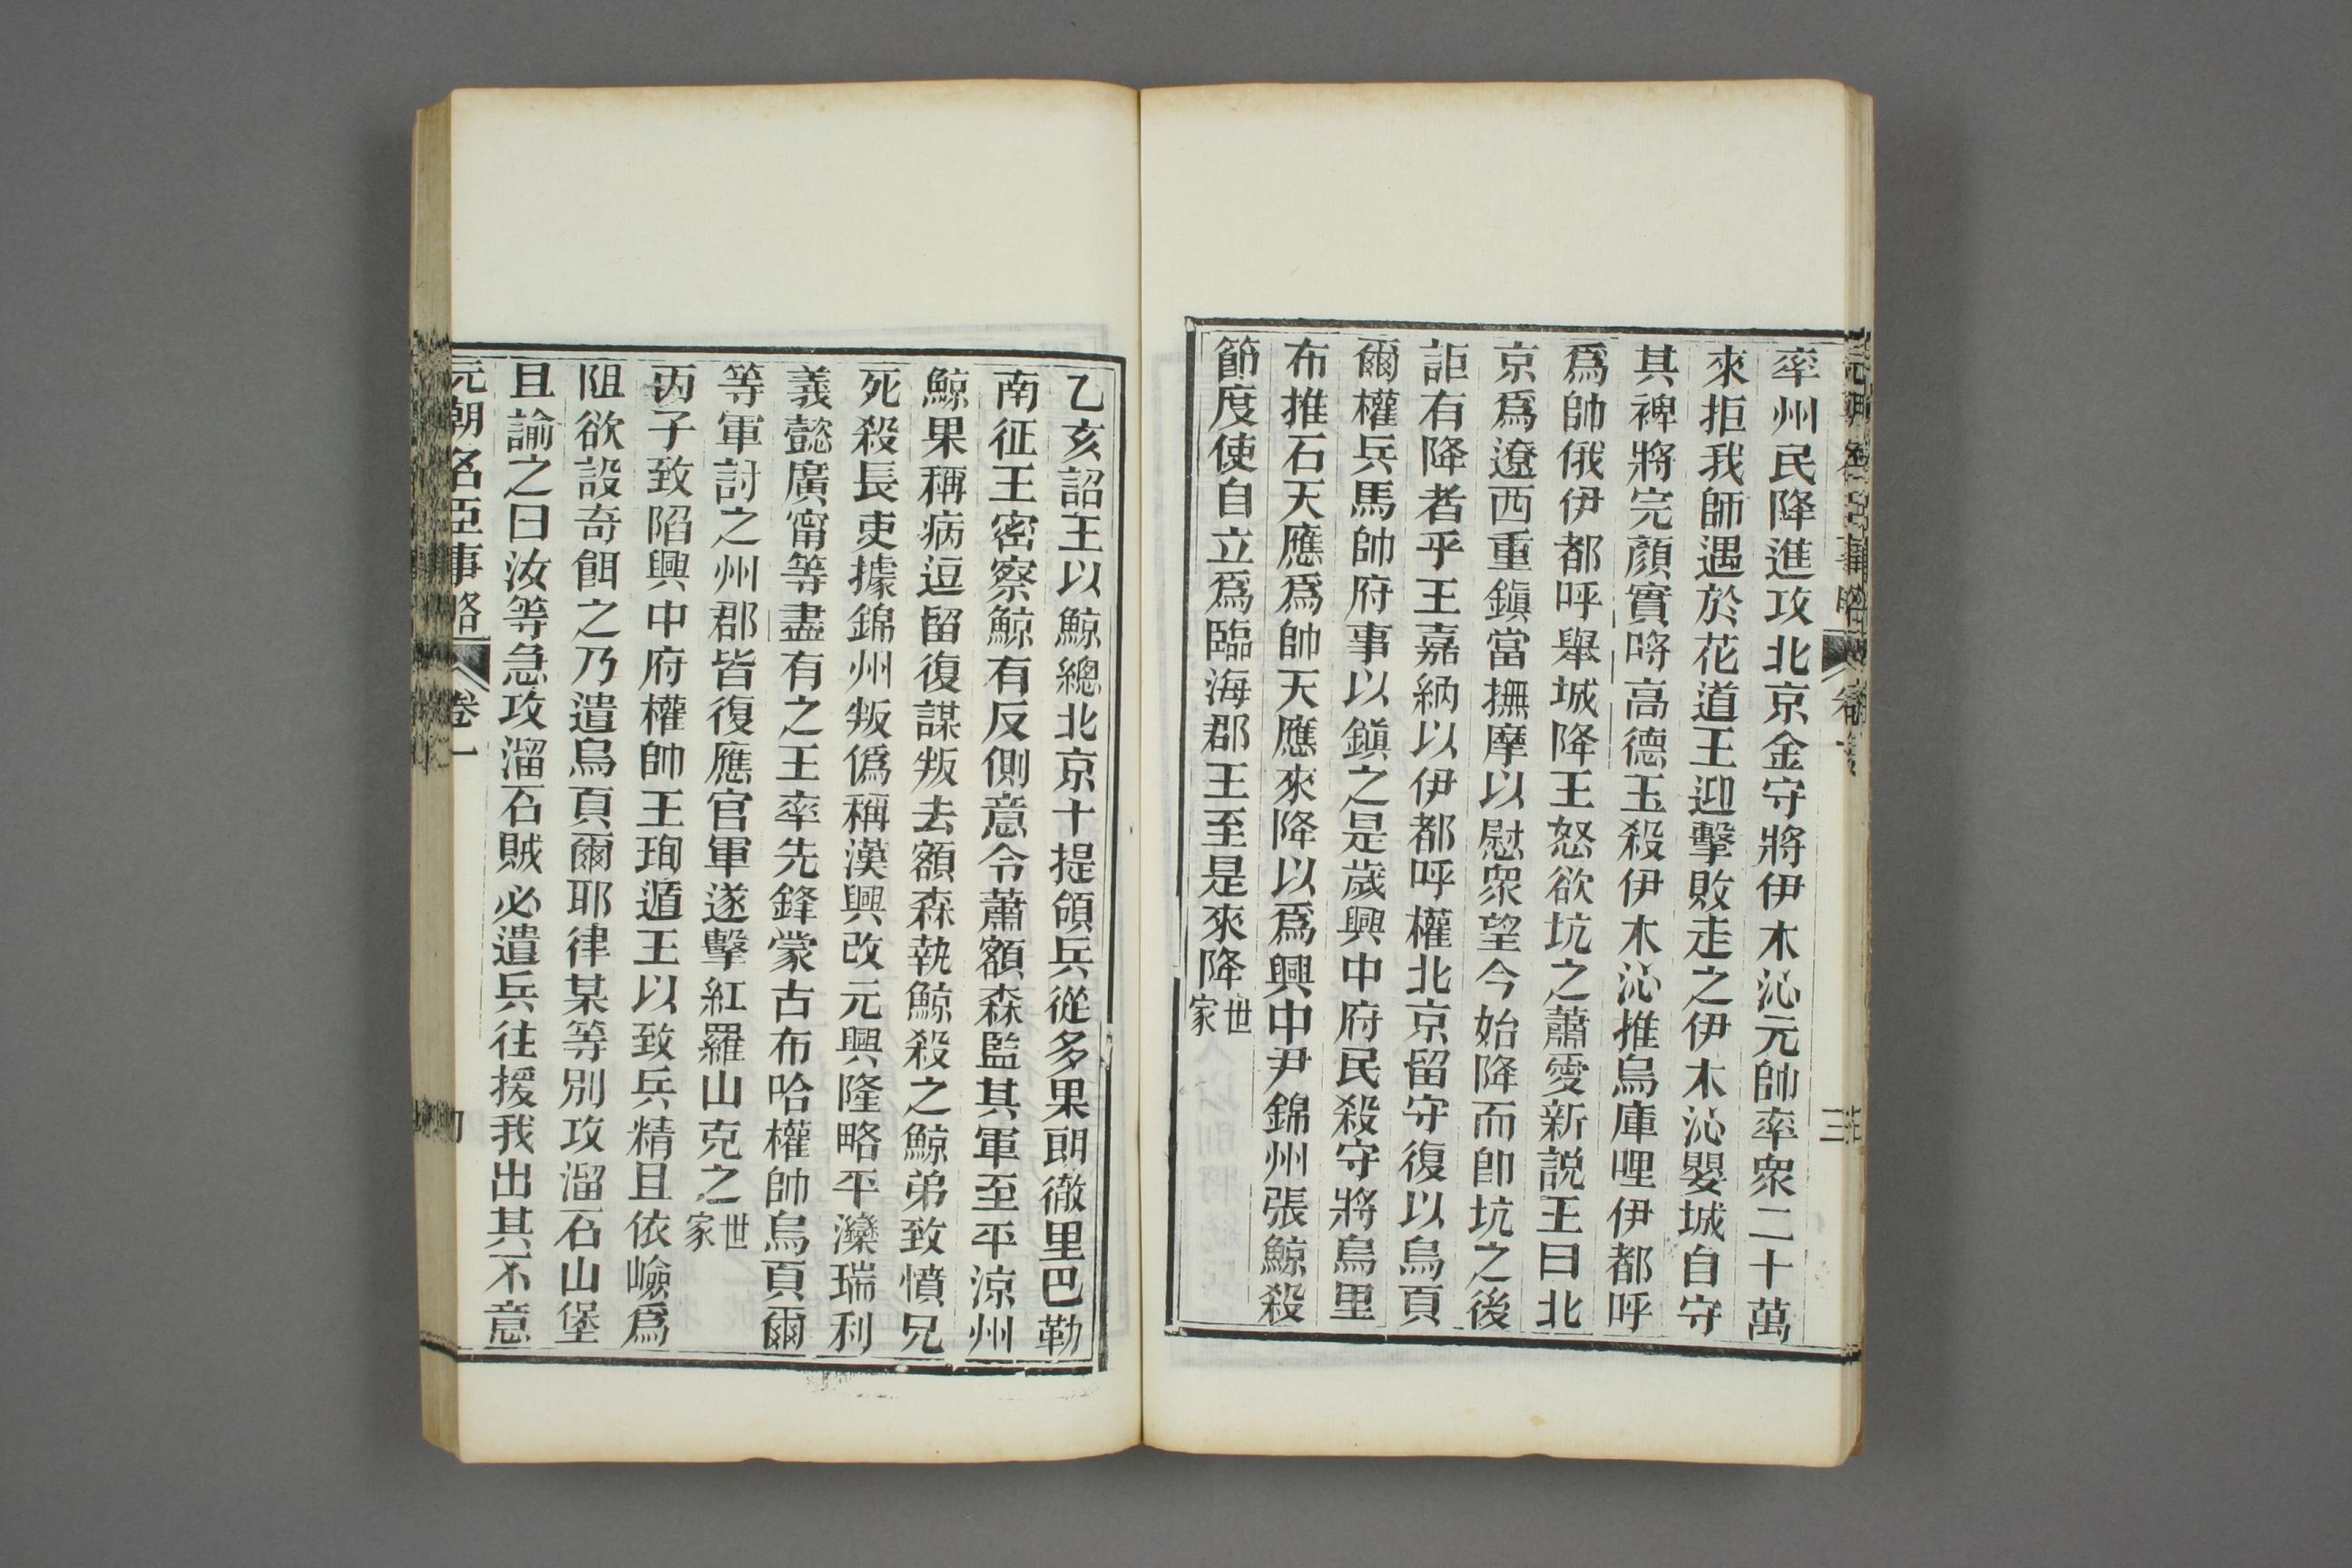 率州民降進攻北京金守將伊木沁元帥率衆二十萬
來拒我師遇於花道王迎擊敗走之伊木沁嬰城自守
其裨將完顏實嚕高德玉殺伊木沁推烏庫哩伊都呼
爲帥俄伊都呼舉城降王怒欲坑之蕭雯新說王曰北
京爲遼西重鎭當撫摩以慰衆望今始降而卽坑之後
詎有降者乎王嘉納以伊都呼權北京留守復以烏頁
爾權兵馬帥府事以鎭之是歲興中府民殺守將烏里
布推石天應爲帥天應來降以爲興中尹錦州張鯨殺
節度使自立爲臨海郡王至是來降世家
乙亥詔王以鯨總北京十提領兵從多果朗徹里巴勒
南征王密察鯨有反側意令蕭額森監其軍至平涼州
鯨果稱病逗留復謀叛去額森執鯨殺之鯨弟致憤兄
死殺長吏據錦州叛僞稱漢興改元興隆略平灤瑞利
義懿廣甯等盡有之王率先鋒蒙古布哈權帥烏頁爾
等軍討之州郡皆復應官軍遂擊紅羅山克之世家
丙子致陷興中府權帥王珣遁王以致兵精且依嶮爲
阻欲設奇餌之乃遣烏頁爾耶律某等別攻溜石山堡
且諭之曰汝等急攻溜石賊必遣兵往援我出其不意
元朝名臣事略 卷一